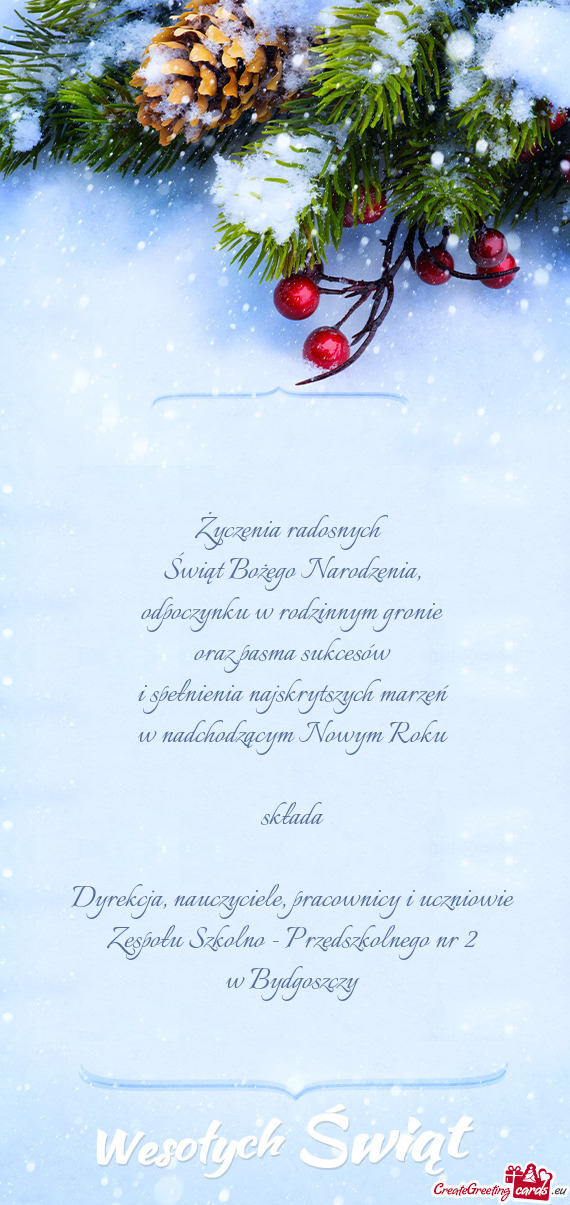 Życzenia radosnych
Świąt Bożego Narodzenia,
odpoczynku w rodzinnym gronie
oraz pasma sukcesów
i spełnienia najskrytszych marzeń
w nadchodzącym Nowym Roku
składa
Dyrekcja, nauczyciele, pracownicy i uczniowie
Zespołu Szkolno - Przedszkolnego nr 2
w Bydgoszczy
Wesołych Świąt
CreateGreeting cards .eu